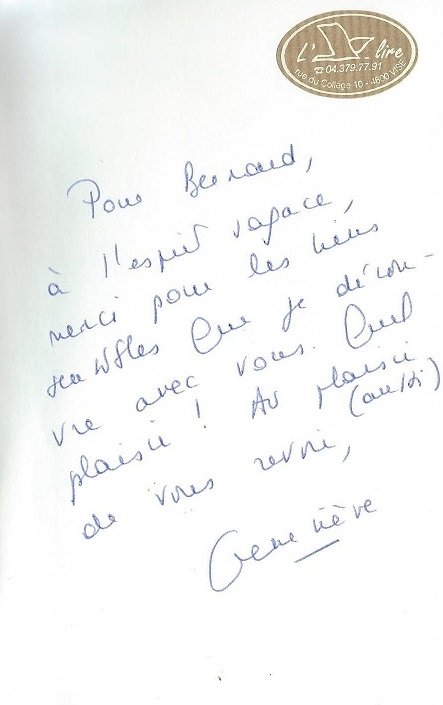 L'
lire
☎ 04.379.77.91
rue du Collège 10 - 4600 VISE
Pour Bernard,
à l'esprit sagace,
merci pour les liens
sensibles que je décou-
vre avec vous. Quel
plaisir ! Au plaisir
(aussi)
de vous revoir,
Geneviève